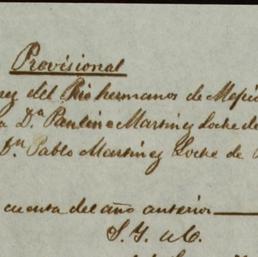 Provisional
rey del Rio hermanos de Mejic
a D.ª Paulino Martinez Locke de
D.n Pablo Martinez Locke de
cuenta del año anterior
S. Y. u O.